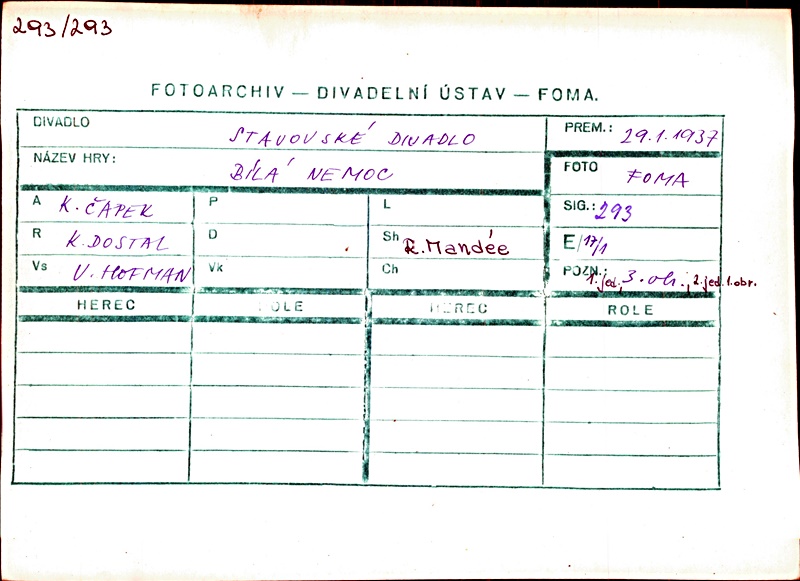 293/293
FOTOARCHIV — DIVADELNÍ ÚSTAV — FOMA.
DIVADLO STAVOVSKÉ DIVADLO PREM.: 29.1.1937
NÁZEV HRY: BÍLÁ NEMOC FOTO FOMA
A K. ČAPEK P L SIG.: 293
R K. DOSTAL D Sh R. Mandée E/17/1
Vs V. HOFMAN Vk Ch POZN.: 1. jed., 3. ob., 2. jed. 1. obr.
HEREC ROLE HEREC ROLE